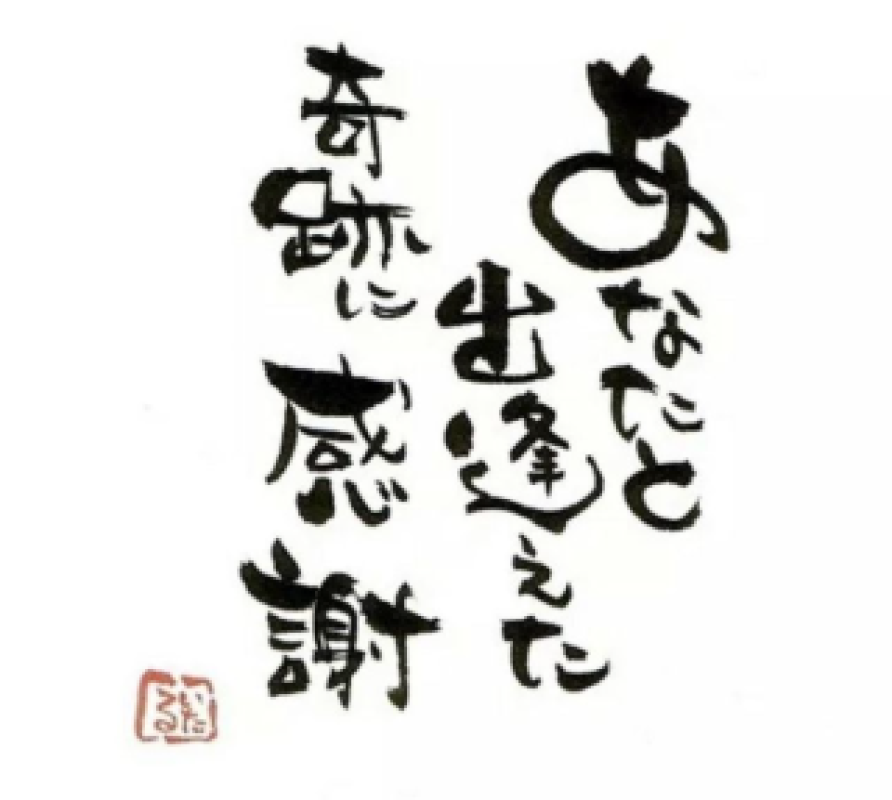 あなたと
出逢えた
奇跡に
感謝
いたる